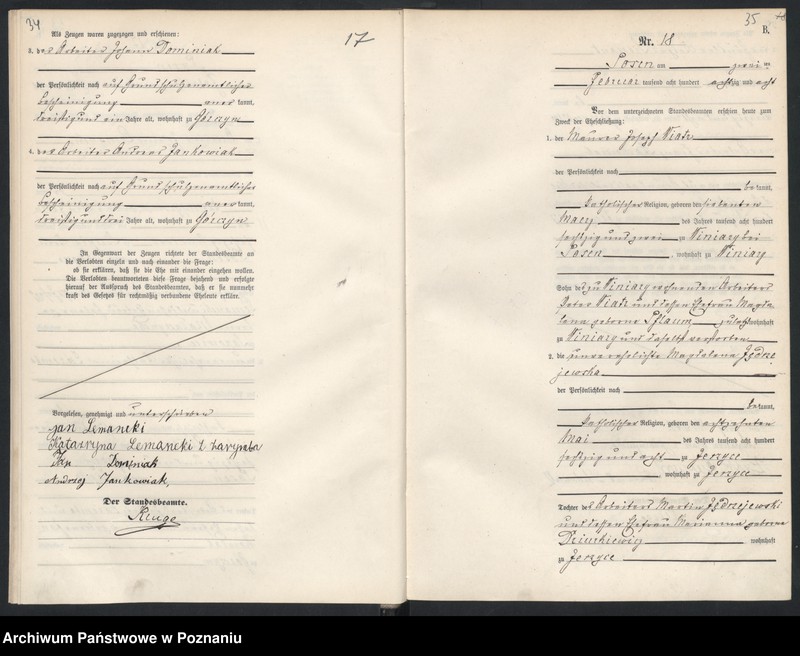 34
17
Als Zeugen waren zugezogen und erschienen:
3. der Arbeiter Johann Dominiak
der Persönlichkeit nach auf Grund schulzenamtlicher
Bescheinigung anerkannt,
dreißig und ein Jahre alt, wohnhaft zu Górczyn
4. der Arbeiter Andreas Jankowiak
der Persönlichkeit nach auf Grund schulzenamtlicher
Bescheinigung anerkannt,
dreißig und drei Jahre alt, wohnhaft zu Górczyn
In Gegenwart der Zeugen richtete der Standesbeamte an
die Verlobten einzeln und nach einander die Frage:
ob sie erklären, daß sie die Ehe mit einander eingehen wollen.
Die Verlobten beantworteten diese Frage bejahend und erfolgte
hierauf der Ausspruch des Standesbeamten, daß er sie nunmehr
kraft des Gesetzes für rechtmäßig verbundene Eheleute erkläre.
Vorgelesen, genehmigt und unterschrieben
Jan Lemancki
Katarzyna Lemancki
Dominiak
Andrzej Jankowiak,
Der Standesbeamte.
Kluge
35
B.
Nr. 18
Posen am zwei ten
Februar tausend acht hundert achtzig und acht
Vor dem unterzeichneten Standesbeamten erschien heute zum
Zweck der Eheschließung:
1. der Maurer Joseph Wiatr
der Persönlichkeit nach
bekannt,
katholischer Religion, geboren den siebenten
März des Jahres tausend acht hundert
sechzig und zwei zu Winiary bei
Posen, wohnhaft zu Winiary
Sohn des zu Winiary wohnenden Arbeiters
Peter Wiatr und dessen Ehefrau Magda-
lena geborne Pflaum, zuletzt wohnhaft
zu Winiary und daselbst verstorben
2. die unverehelichte Magdalena Jędrze-
jewska
der Persönlichkeit nach
bekannt,
katholischer Religion, geboren den achtzehnten
Mai des Jahres tausend acht hundert
sechzig und acht zu Jerzyce
wohnhaft zu Jerzyce
Tochter des Arbeiters Martin Jędrzejewski
und dessen Ehefrau Marianna geborne
wohnhaft
zu Jerzyce
Archiwum Państwowe w Poznaniu